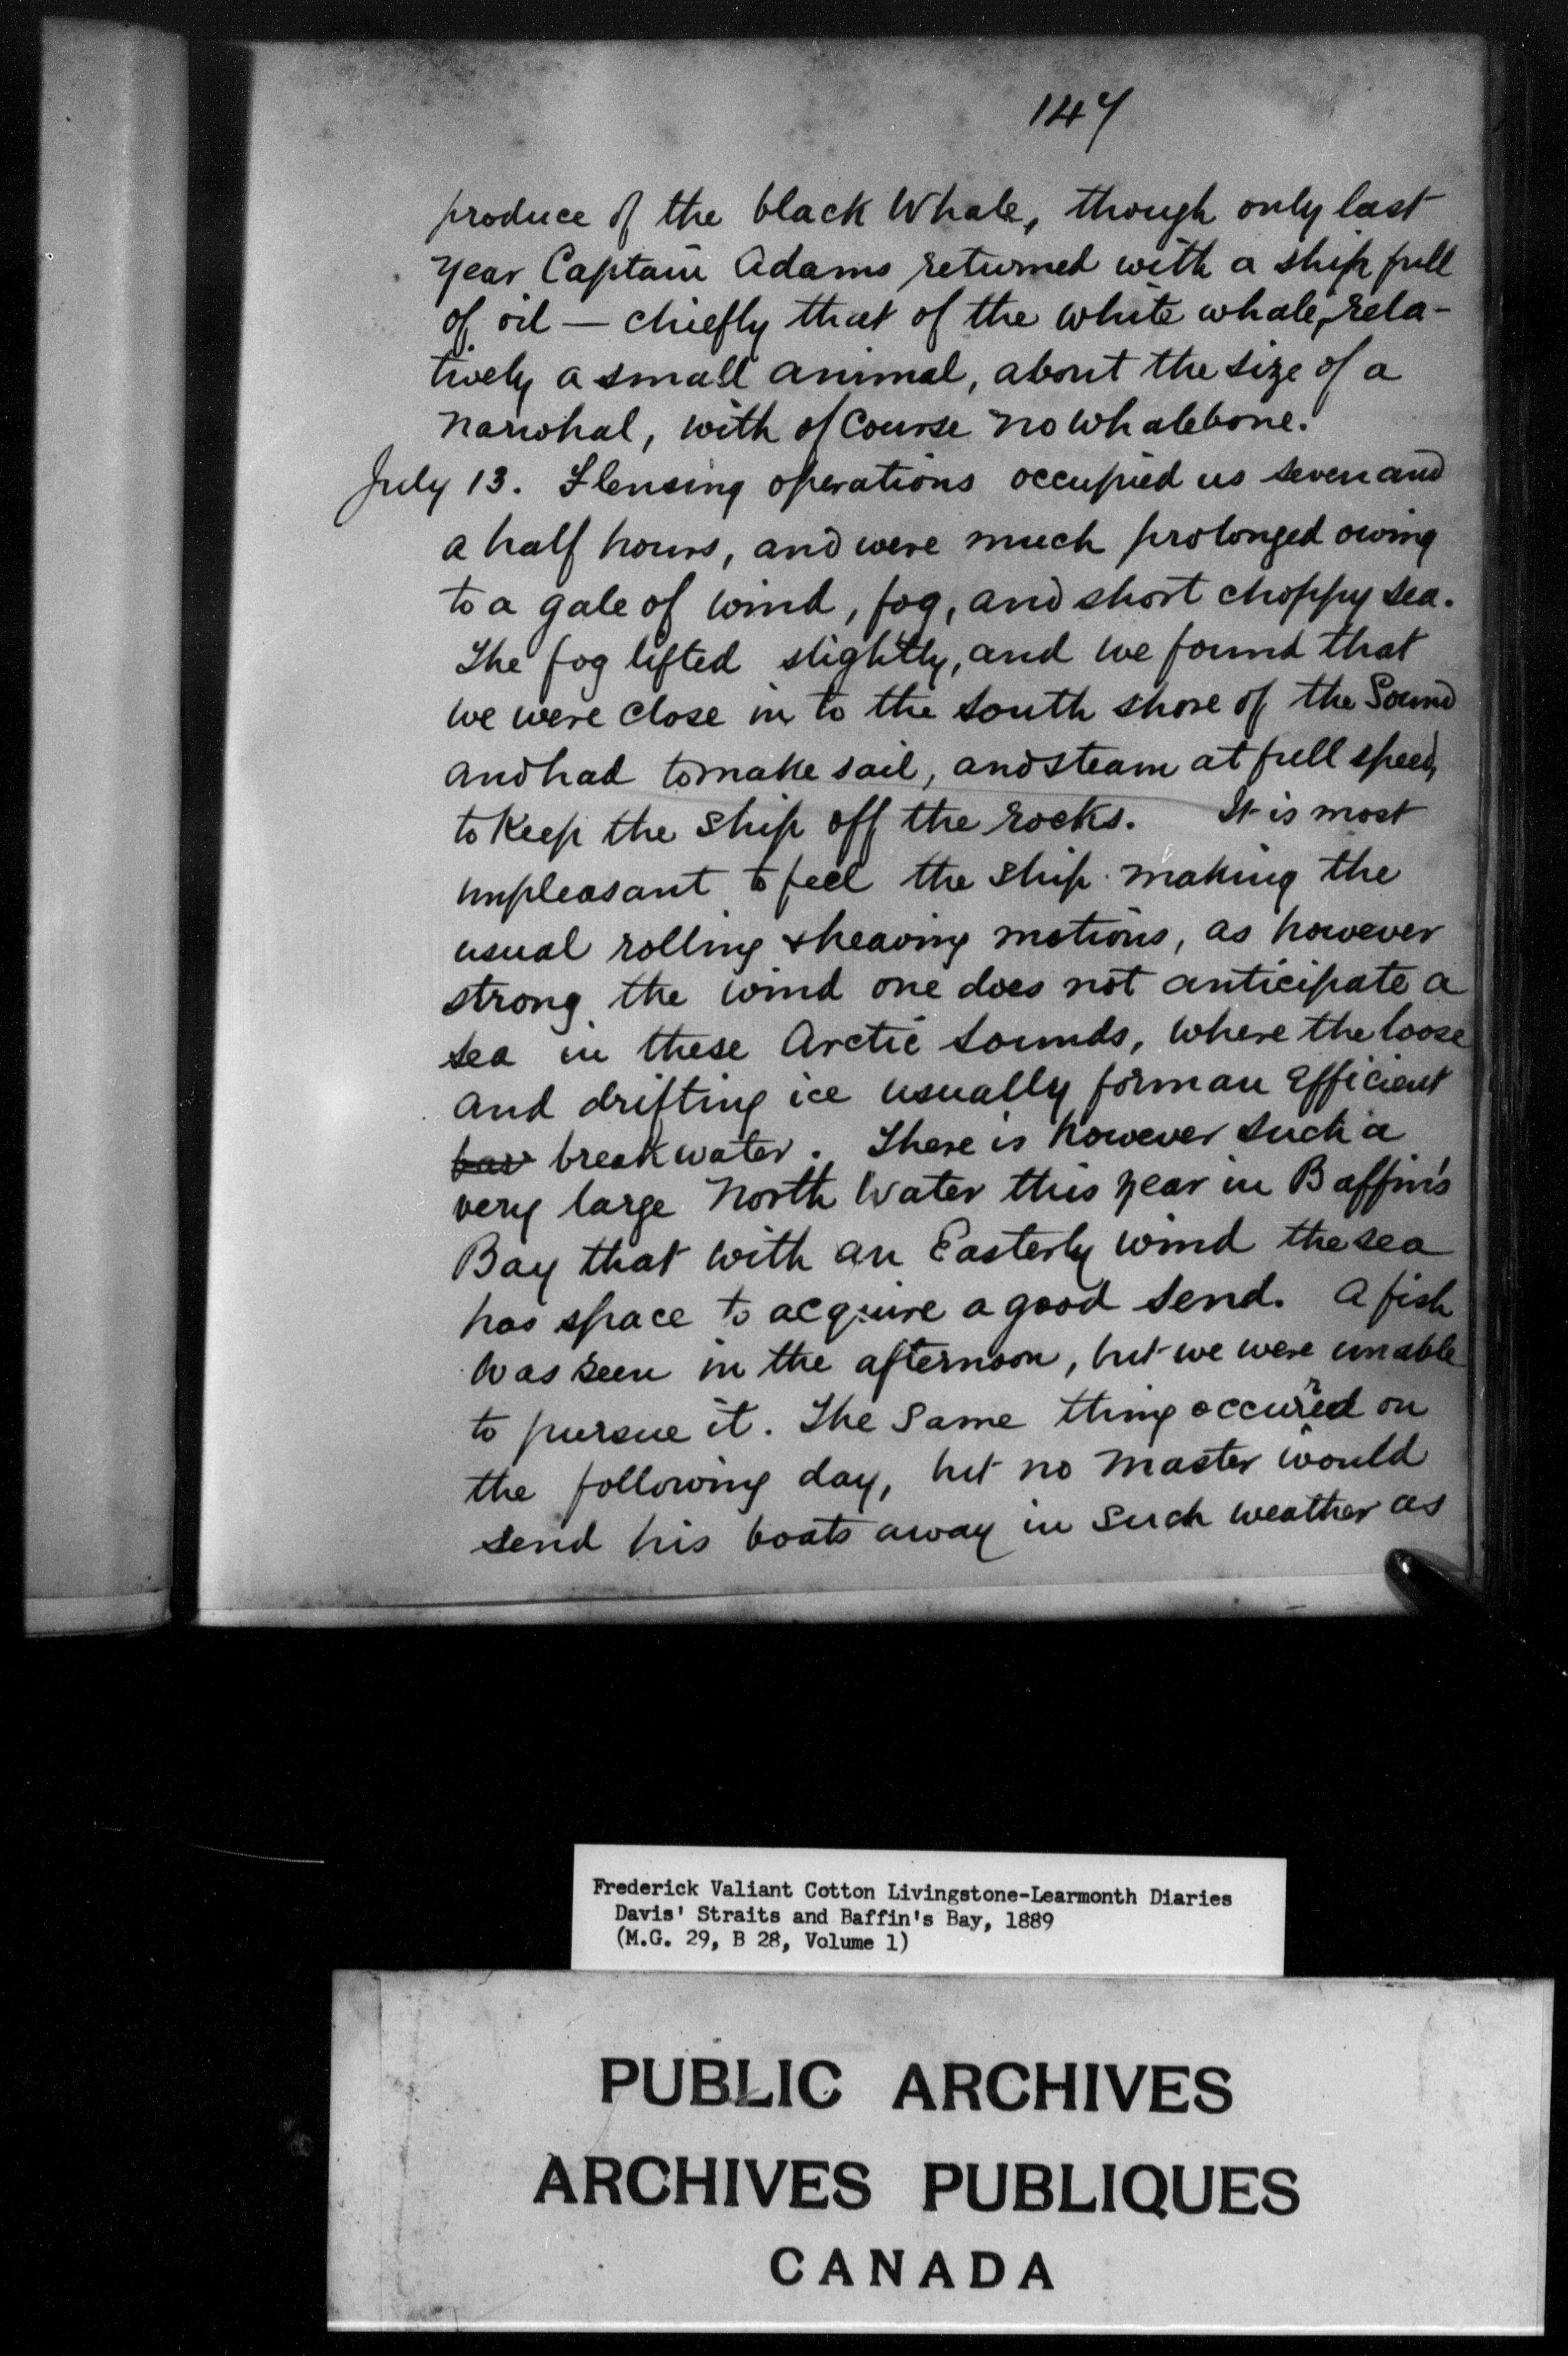 147
produce of the black Whale, though only last
year Captain Adams returned with a ship full
of oil — chiefly that of the white whale, rela-
tively a small animal, about the size of a
narwhal, with of course no whalebone.
July 13. Flensing operations occupied us seven and
a half hours, and were much prolonged owing
to a gale of wind, fog, and short choppy sea.
The fog lifted slightly, and we found that
we were close in to the south shore of the Sound
and had to make sail, and steam at full speed,
to keep the ship off the rocks. It is most
unpleasant to feel the ship making the
usual rolling & heaving motions, as however
strong the wind one does not anticipate a
sea in these Arctic Sounds, where the loose
and drifting ice usually form an efficient
bar breakwater. There is however such a
very large North Water this year in Baffin's
Bay that with an Easterly wind the sea
has space to acquire a good send. A fish
was seen in the afternoon, but we were unable
to pursue it. The same thing occurred on
the following day, but no Master would
send his boats away in such weather as
Frederick Valiant Cotton Livingstone-Learmonth Diaries
Davis' Straits and Baffin's Bay, 1889
(M.G. 29, B 28, Volume 1)
PUBLIC ARCHIVES
ARCHIVES PUBLIQUES
CANADA